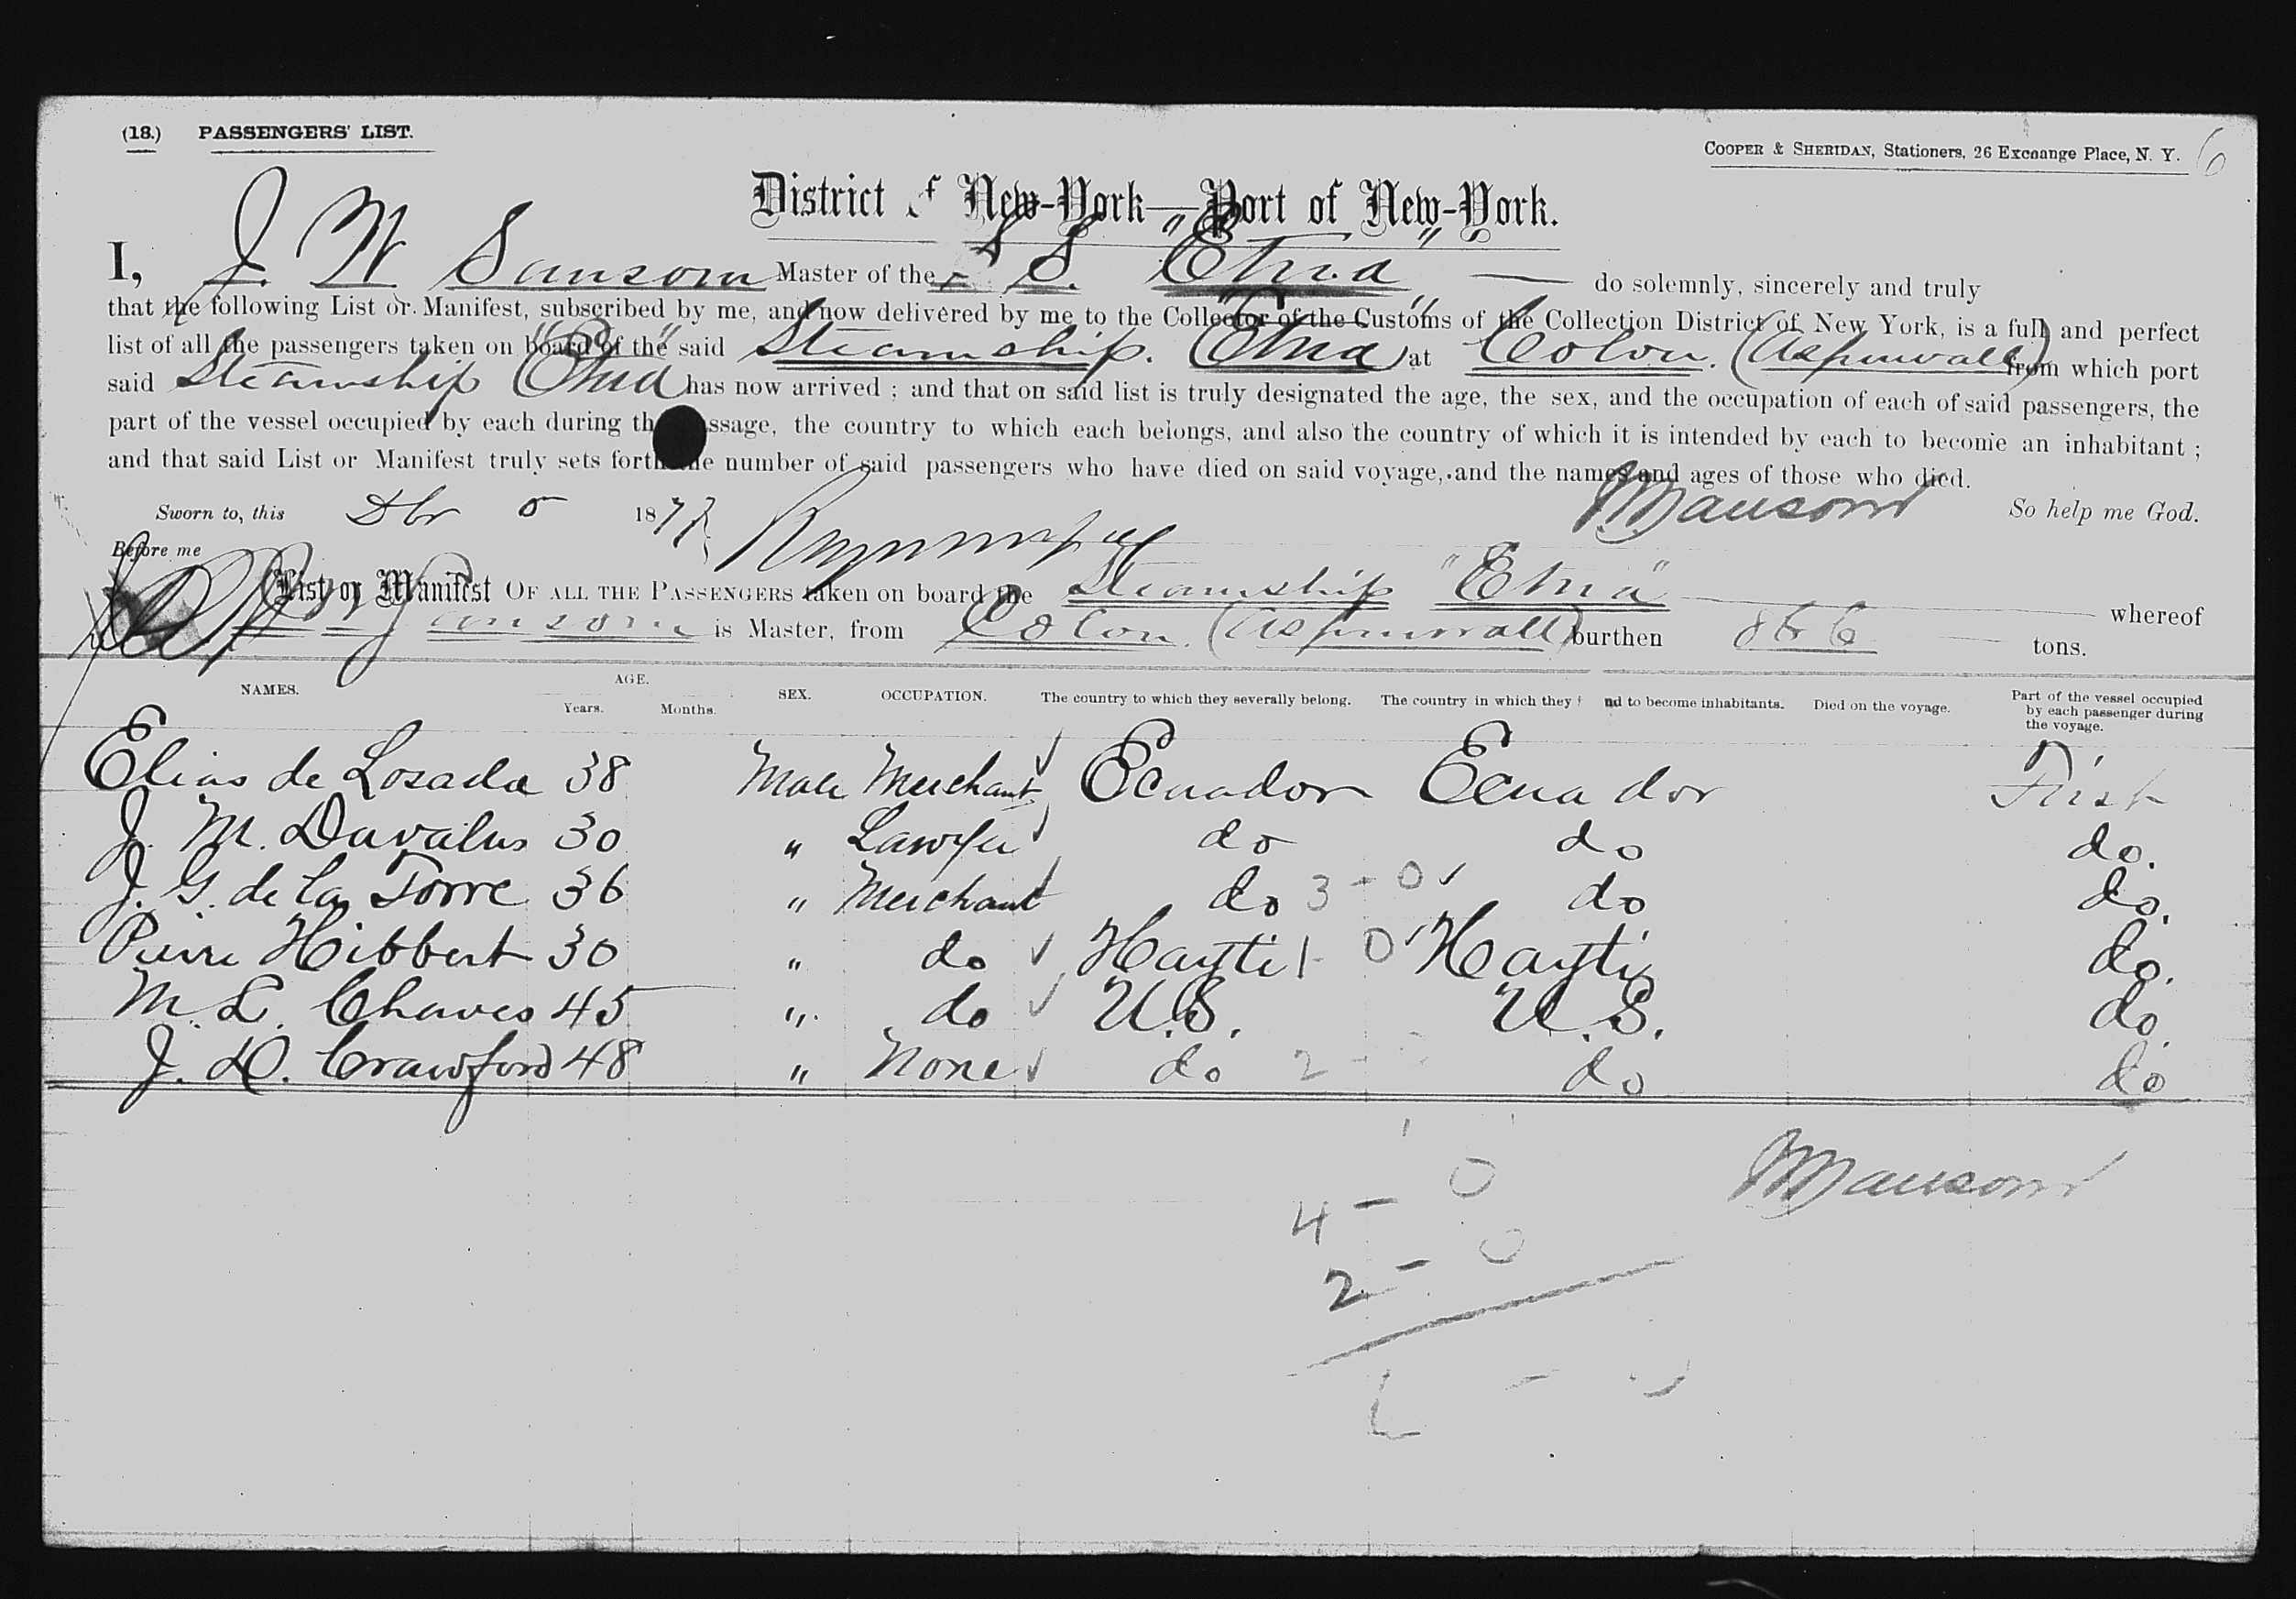 (18.) PASSENGERS' LIST.
COOPER & SHERIDAN, Stationers, 26 Excnange Place, N. Y. 6
District of New-York—Port of New-York.
I, J. W Sansom Master of the S. S. "Etna" do solemnly, sincerely and truly
that the following List or Manifest, subscribed by me, and now delivered by me to the Collector of the Customs of the Collection District of New York, is a full and perfect
list of all the passengers taken on board of the said Steamship. "Etna" at Colon. (Aspinwall) from which port
said Steamship "Etna" has now arrived ; and that on said list is truly designated the age, the sex, and the occupation of each of said passengers, the
part of the vessel occupied by each during th ssage, the country to which each belongs, and also the country of which it is intended by each to become an inhabitant ;
and that said List or Manifest truly sets forth the number of said passengers who have died on said voyage, and the names and ages of those who died.
Sworn to, this Dbr 5 187 JWSansom So help me God.
Before me
List or Manifest OF ALL THE PASSENGERS taken on board the Steamship "Etna" whereof
Sansom is Master, from Colon. (Aspinwall) burthen 866 tons.
NAMES. AGE. Years. Months. SEX. OCCUPATION. The country to which they severally belong. The country in which they nd to become inhabitants. Died on the voyage. Part of the vessel occupied by each passenger during the voyage.
Elias de Losada 38 Male Merchant Ecuador Ecuador First
J. M. Davalos 30 " Lawyer do do do.
J. G. de la Torre 36 " Merchant do 3 - 0 do do.
Pierre Hibbert 30 " do Hayti 1 - 0 Hayti do.
M. L. Chaves 45 " do U.S. U.S. do.
J. D. Crawford 48 " None do 2 - do do
4 - 0
JWSansom
2 - 0
6 -